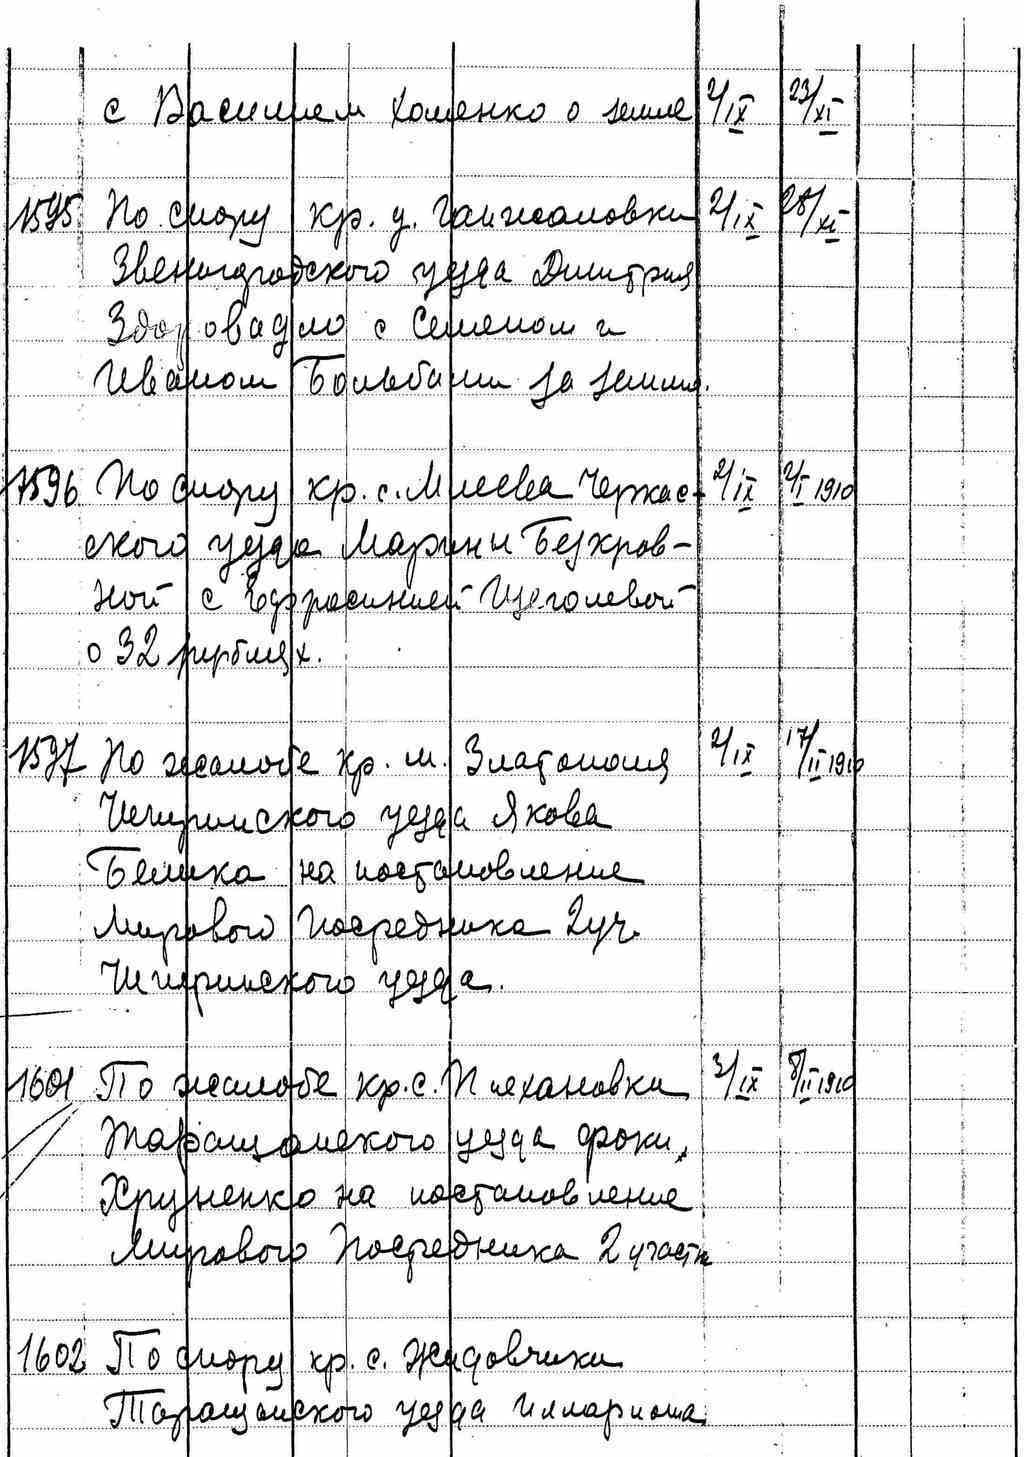 с Василием Хоменко о земле 2/IX 23/XI
1595 По спору кр. д. Ганжаловки 2/IX 28/XI
Звенигородского уезда Дмитрия
Здоровадло с Семеном и
Иваном Больбами за землю.
1596 По спору кр. с. Млеева Черкас- 2/IX 2/I 1910
ского уезда Марины Безкров-
ной с Ефросинией Щеголевой
о 32 рублях.
1597 По жалобе кр. м. Златополя 2/IX 17/II 1910
Чигиринского уезда Якова
Белика на постановление
Мирового Посредника 2 уч.
Чигиринского уезда.
1601 По жалобе кр. с. Плехановки 3/IX 8/II 1910
Таращанского уезда Фоки
Хруненко на постановление
Мирового Посредника 2 участк
1602 По спору кр. с. Жидовчики
Таращанского уезда Иллариона